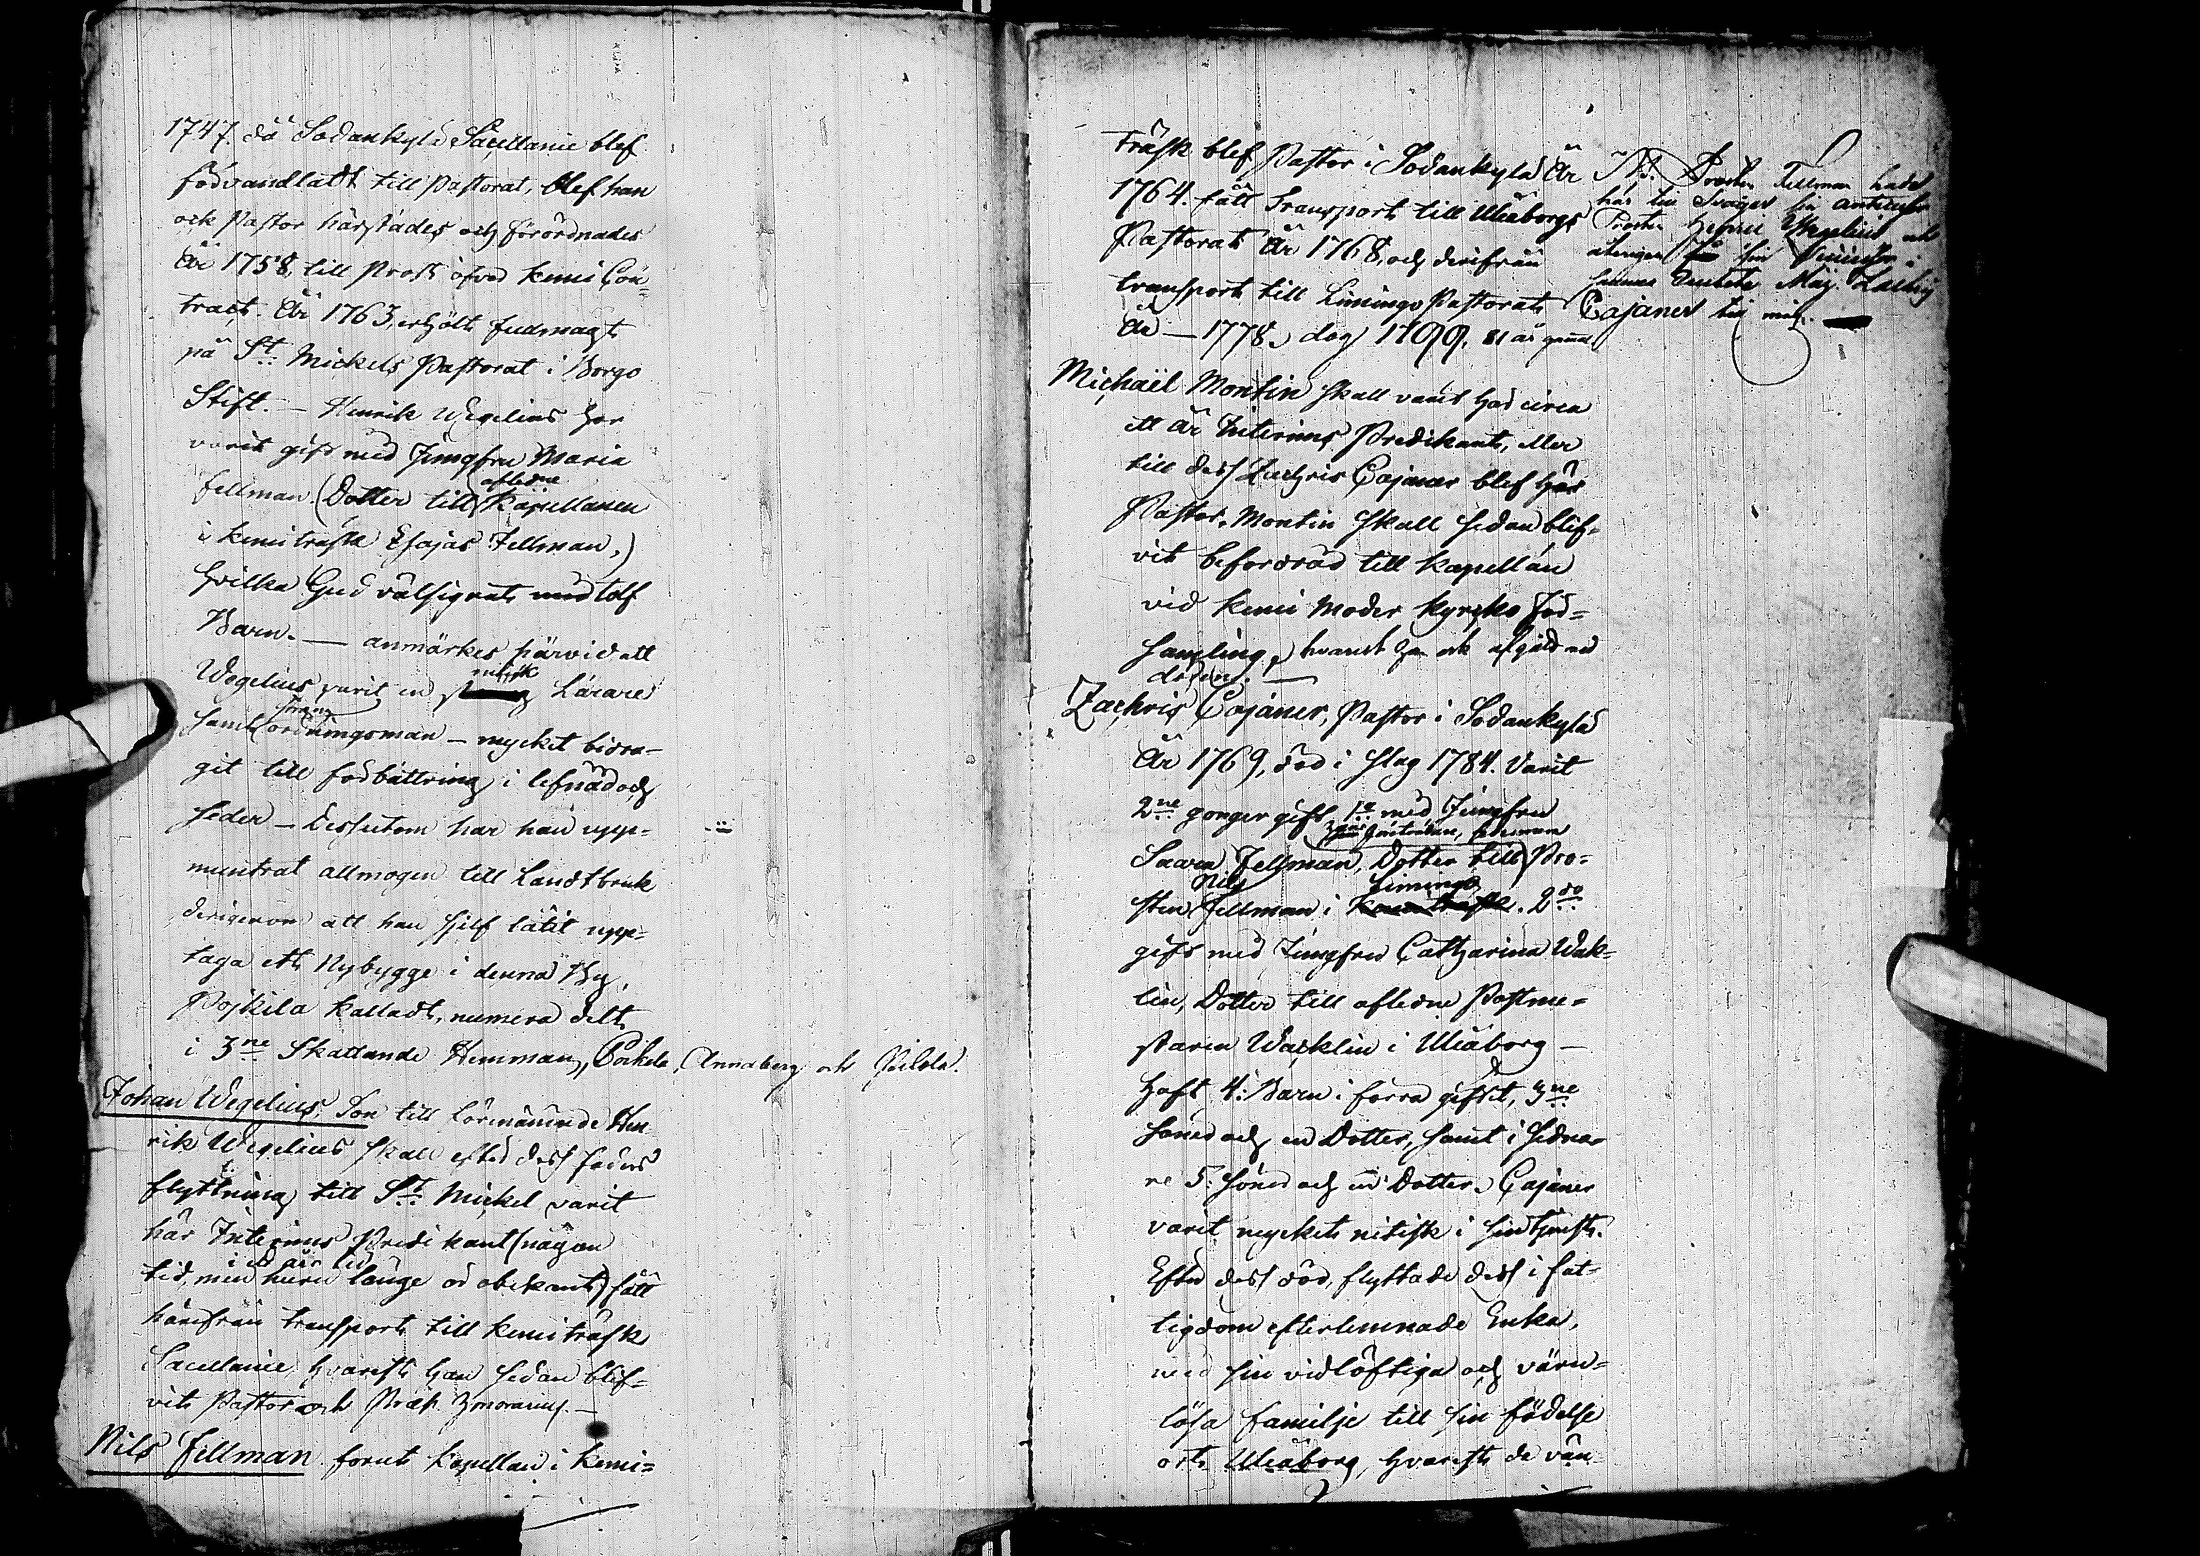 1747. då Sodankylä Sacellanie blef
förvandladt till Pastorat, blef han
ock Pastor härstädes och förordnades
År 1758, till Prost öfver Kemi Con¬
tract. År 1763, erhölt fullmagt
på St. Mickels Pastorat i Borgo
Stift. — Henrik Wegelius har
varit gift med Jungfru Maria
Fellman (Dotter till afledne Kapellanen
i Kemi träsk Esajas Fellman,)
hvilka Gud välsignat med tolf
Barn. — anmärkes härvid att
Wegelius varit en nitisk Lärare
samt sträng ordningsman — mycket bidra¬
git till förbättring i lefnad och
seder — Dessutom har han upp¬
muntrat allmogen till Landtbruk
derigenom att han sjelf låtit upp¬
taga ett Nybygge i denna By,
Pojkila kalladt, numera delt
i 3ne Skattande Hemman, Annaberg och
Johan Wegelius, Son till Hen¬
rik Wegelius skall efter dess faders
flyttning till St. Mickel varit
här Interims Predikant (någon
tid, men huru länge är obekant) fått
i ett års tid
härifrån transport till Kemi träsk
Sacellanie, hvarest han sedan blif¬
vit Pastor och Præp. honorarius. —
Nils Fellman förut Kapellan i Kemi¬
träsk blef Pastor i Sodankylä År
1764. fått Transport till Uleåborgs
Pastorat År 1768, och derifrån
transport till Limingo Pastorat
År — 1778. dog 1799. 81 år gammal
NB. Prosten Fellman hade
här till Svåger sin antecessor
Prosten Henric Wegelius och
återigen sin
Mag. Zachris
Cajaner till måg.
Michaël Montin skall varit här circa
ett år Interims Predikant, eller
till dess Zachris Cajaner blef här
Pastor. Montin skall sedan blif¬
vit befordrad till Kapellan
vid Kemi Moder Kyrcko För¬
samling, hvarest han ock afgick med
döden. —
Zachris Cajaner, Pastor i Sodankylä
År 1769, död i slag 1784. Varit
2ne gonger gift 1o med Jungfru
Saara Fellman, Dotter till Pro¬
sten Nils Fellman i Limingo Kemiträsk. 2do
gift med Jungfru Catharina Wak¬
lin, Dotter till afledne Postme¬
staren Wacklin i Uleåborg —
Haft 4. Barn i förra giftet, 3ne
söner och en Dotter, samt i sedna¬
re 5. söner och en Dotter. Cajaner
varit mycket nitisk i sin tjenst.
Efter dess död, flyttade dess i fat¬
tigdom efterlemnade Enka,
med sin vidlöftiga och värn¬
lösa familje till sin födelse
ort Uleåborg, hvarest de vän¬